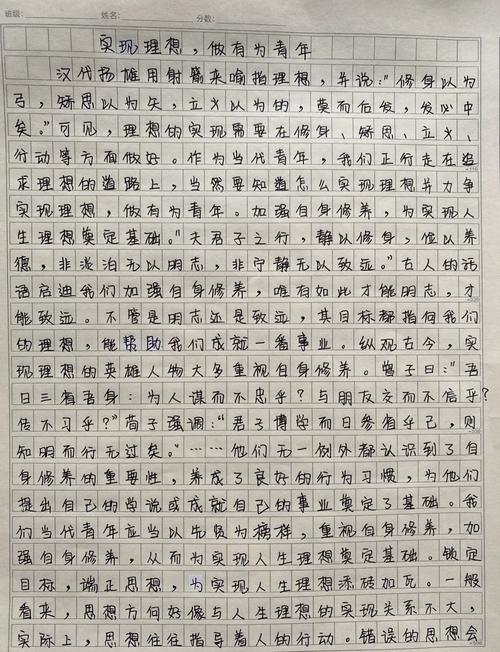 班级： 姓名： 分数：
实现理想，做有为青年
汉代扬雄用射箭来喻指理想，并说："修身以为
弓，矫思以为矢，立义以为的，奠而后发，发必中
矣。"可见，理想的实现需要在修身、矫思、立义、
行动等方面做好。作为当代青年，我们正行走在追
求理想的道路上，当然要知道怎么实现理想并力争
实现理想，做有为青年。加强自身修养，为实现人
生理想奠定基础。"夫君子之行，静以修身，俭以养
德，非淡泊无以明志，非宁静无以致远。"古人的话
语启迪我们加强自身修养，唯有如此才能明志，才
能致远。不管是明志还是致远，其目标都指向我们
的理想，能帮助我们成就一番事业。纵观古今，实
现理想的英雄人物大多重视自身修养。曾子曰："吾
日三省吾身：为人谋而不忠乎？与朋友交而不信乎？
传不习乎？"荀子强调："君子博学而日参省乎己，则
知明而行无过矣。"……他们无一例外都认识到了自
身修养的重要性，养成了良好的行为习惯，为他们
提出自己的学说或成就自己的事业奠定了基础。我
们当代青年应当以先贤为榜样，重视自身修养，加
强自身修养，从而为实现人生理想奠定基础。锁定
目标，端正思想，为实现人生理想添砖加瓦。一般
看来，思想方向好像与人生理想的实现关系不大，
实际上，思想往往指导着人的行动。错误的思想会